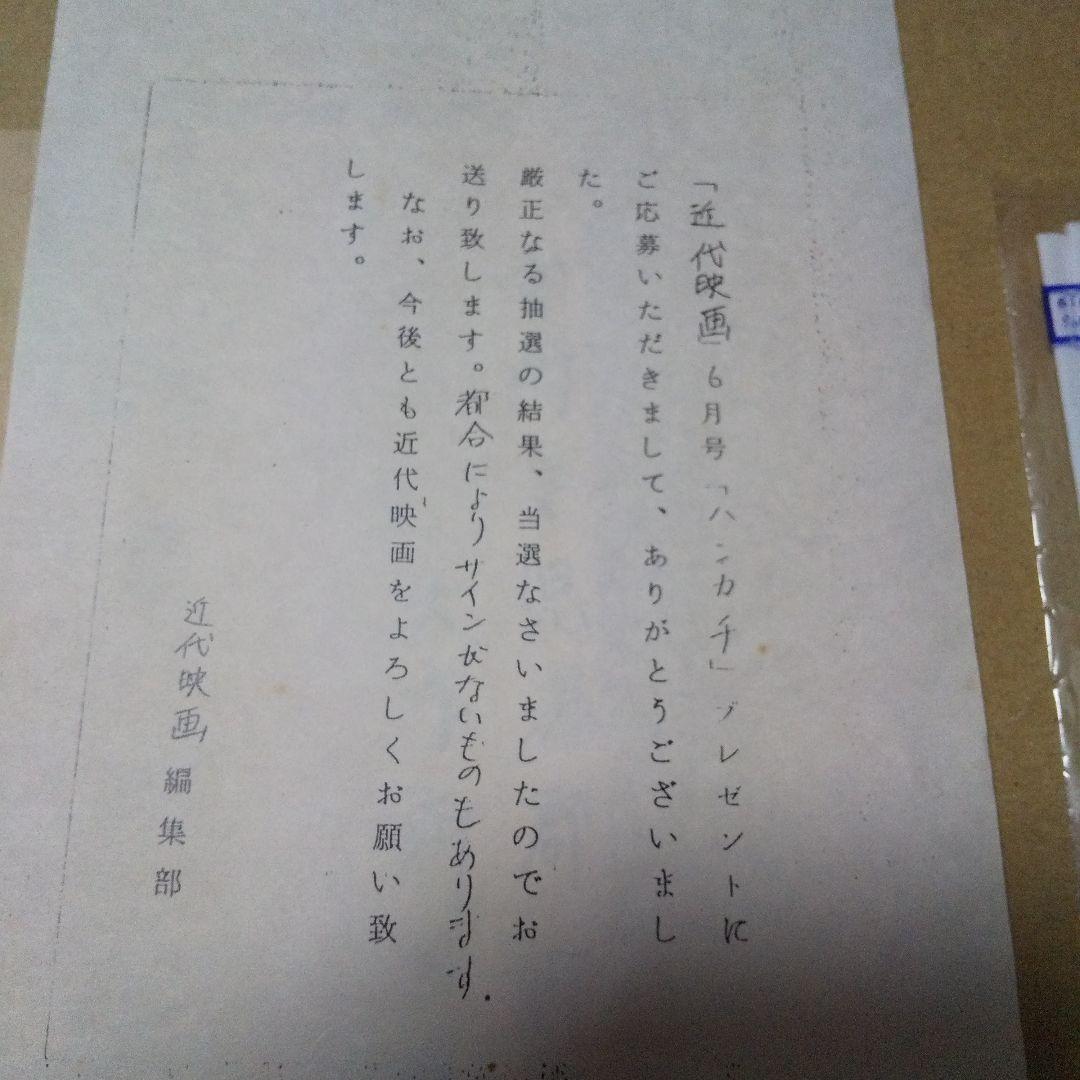 「近代映画」6月号「ハンカチ」プレゼントに
ご応募いただきまして、ありがとうございまし
た。
厳正なる抽選の結果、当選なさいましたのでお
送り致します。都合によりサインがないものもあります。
なお、今後とも近代映画をよろしくお願い致
します。
近代映画編集部